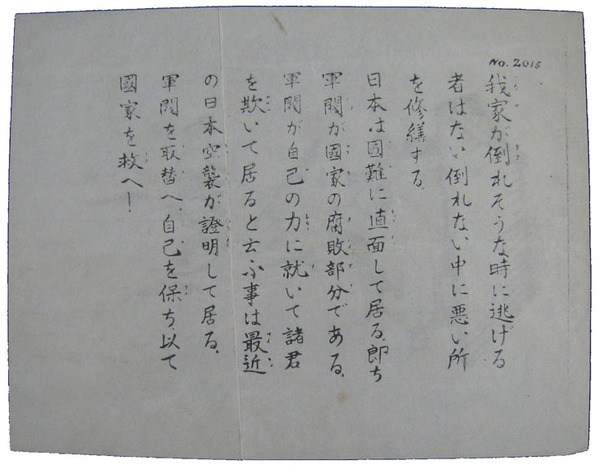 No. 2015
我家が倒れそうな時に逃げる
者はない倒れない中に悪い所
を修繕する。
日本は國難に直面して居る。即ち
軍閥が國家の腐敗部分である。
軍閥が自己の力に就いて諸君
を欺いて居ると云ふ事は最近
の日本空襲が證明して居る。
軍閥を取替へ、自己を保ち以て
國家を救へ!